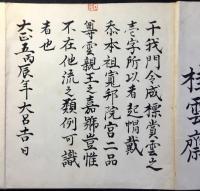 干我門令成標賞雲之
壱字所以者起帽戴
忝本祖寛邦院宮二品
尊雲親王之嘉號豈惟
不在他流之類例可識
者也
大正五丙辰年大呂吉日
桂雲齋